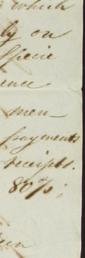 which
ly on
Specie
ence
men
payments
receipts.
80%;